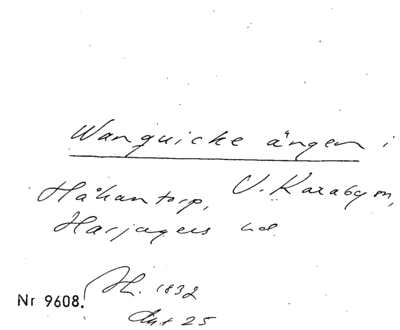 Wanguicke ängen i
Håkantorp, V. Karabyon,
Harjagers hd.
Nr 9608. Th. 1832
Art 25